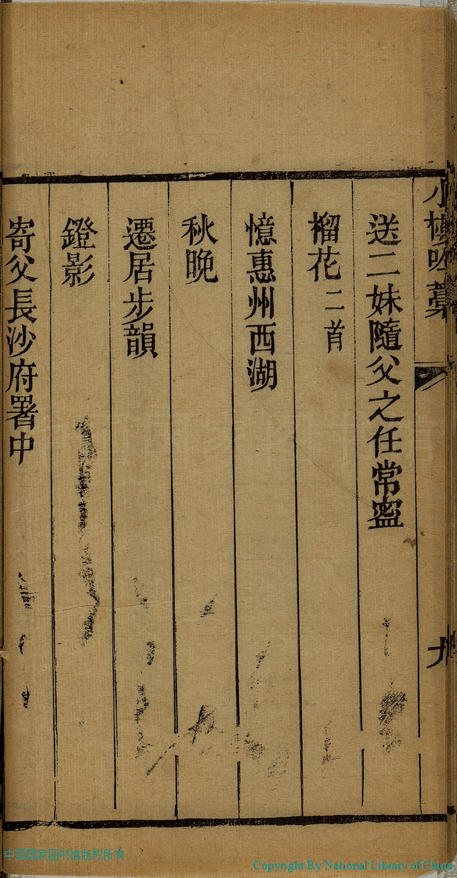 小樓吟藁
九
送二妹隨父之任常寧
榴花二首
憶惠州西湖
秋晚
遷居步韻
鐙影
寄父長沙府署中
Copyright By National Library of China